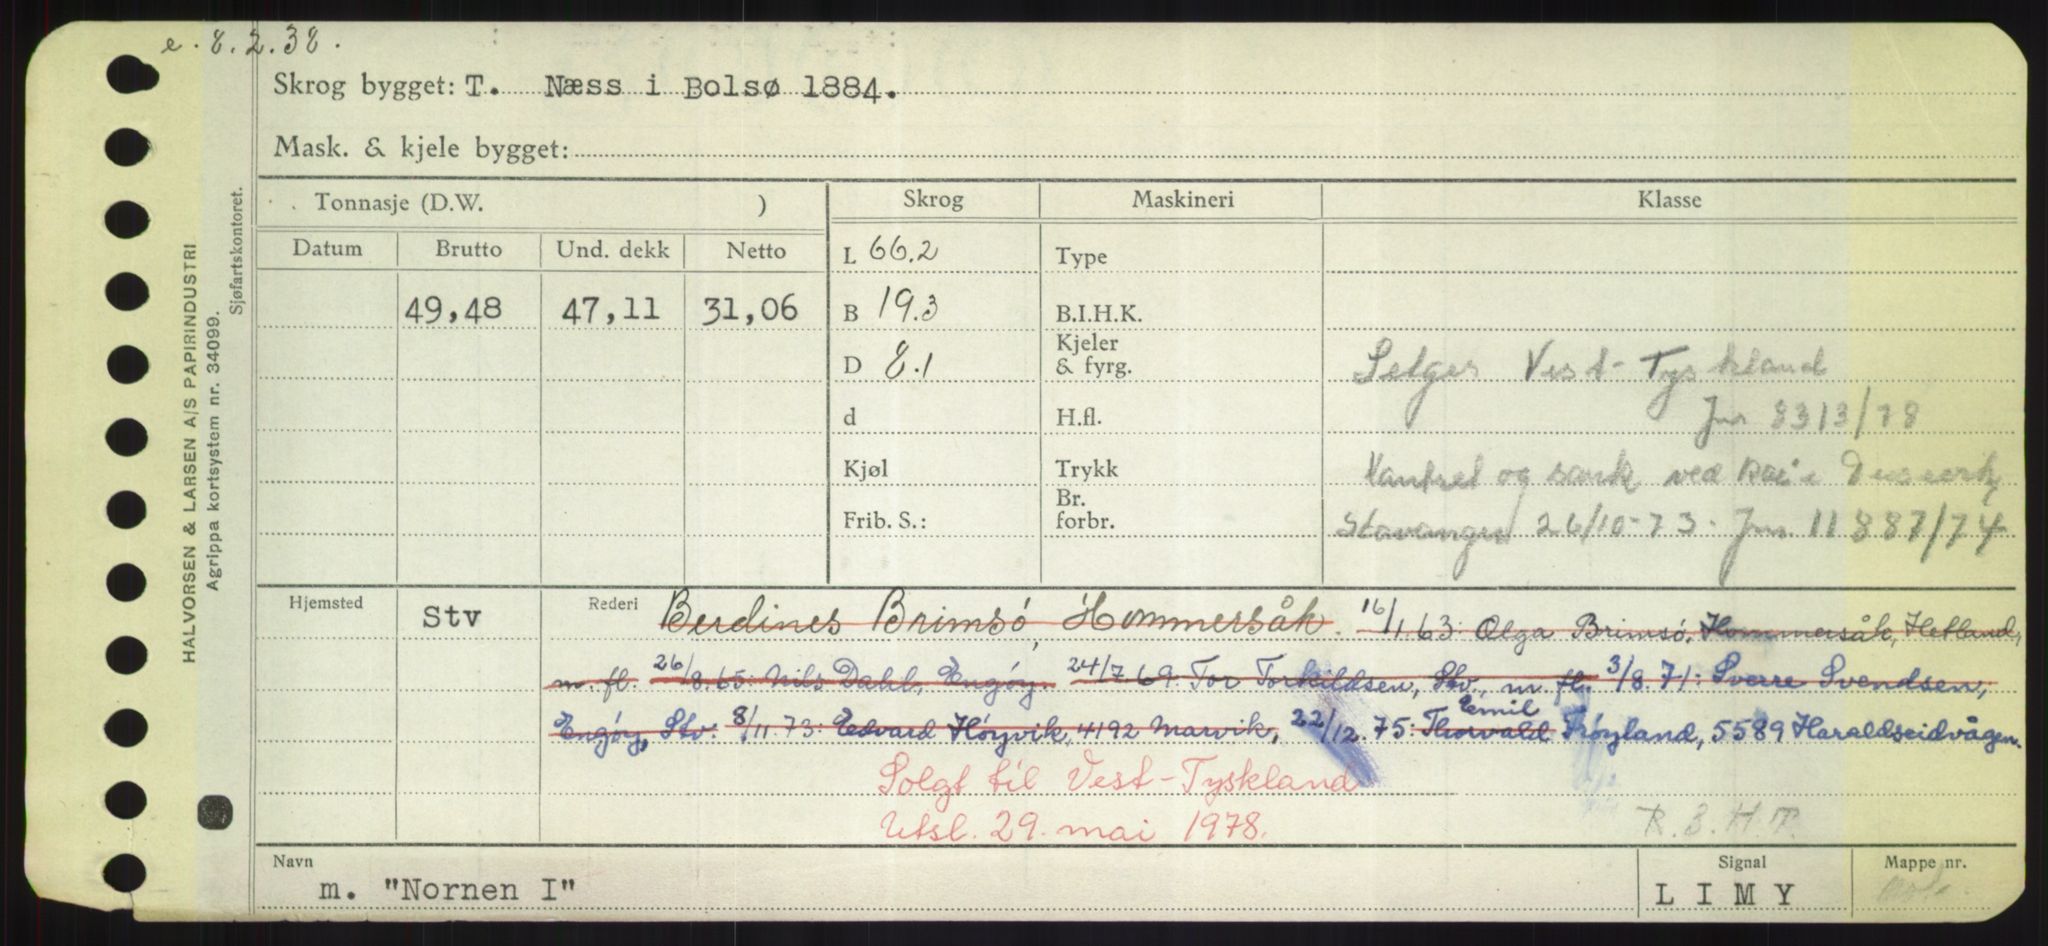 e. 8.2.38.
Skrog bygget: T. Næss i Bolsø 1884.
Mask. & kjele bygget:
HALVORSEN & LARSEN A/S PAPIRINDUSTRI
Agrippa kortsystem nr. 34099.
Sjøfartskontoret.
Tonnasje (D.W. ) Skrog Maskineri Klasse
Datum Brutto Und. dekk Netto L 66.2 Type
49,48 47,11 31,06 B 19.3 B.I.H.K.
D 8.1 Kjeler & fyrg. Selges Vest-Tyskland
d H.fl. Jnr 8313/78
Kjøl Trykk Kantret og sank ved kai i
Frib. S.: Br. forbr. Stavanger 26/10-73. Jnr. 11887/74
Hjemsted Stv Rederi Berdines Brimsö, Hommersåk. 16/1.63: Olga Brimsö, Hommersåk, Hetland,
m. fl. 26/8.65: Nils Dahl, Engöy. 24/7.69: Tor Torkildsen, Stv., m. fl. 3/8.71: Sverre Svendsen,
Engöy, Stv. 8/11.73: Edvard Höyvik, 4192 Marvik, 22/12.75: Thorvald Emil Fröyland, 5589 Haraldseidvågen.
Solgt til Vest-Tyskland
Utsl. 29. mai 1978.
R.B.H.T.
Navn Signal Mappe nr.
m. "Nornen I" LIMY